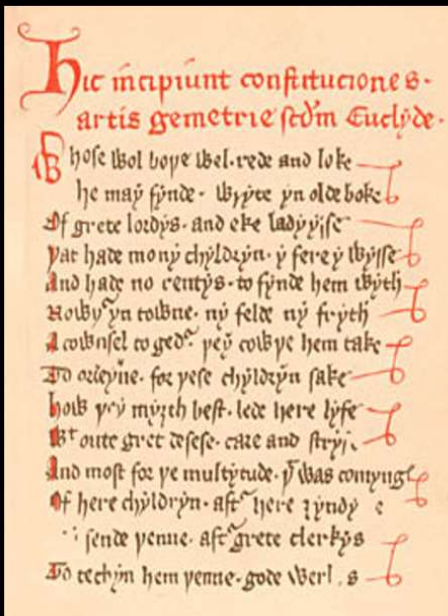 Hic incipiunt constituciones·
artis gemetrie scdm Euclyde·
Whose wol boþe wel·rede and loke
he may fynde· wryte yn olde boke
Of grete lordys· and eke ladyysse
Þat hade mony chyldryn· y fere y wysse
And hade no rentys· to fynde hem wyth
Nowþr yn towne· ny felde ny fryth
A cownsel to gedr þey cowþe hem take
To ordeyne· for þese chyldryn sake
How þey myȝth best· lede here lyfe
Wt oute gret desese· care and
And most for þe multytude· þt was
Of here chyldryn· aftr here
sende þenne· aftr grete clerkys
To techyn hem þenne· gode